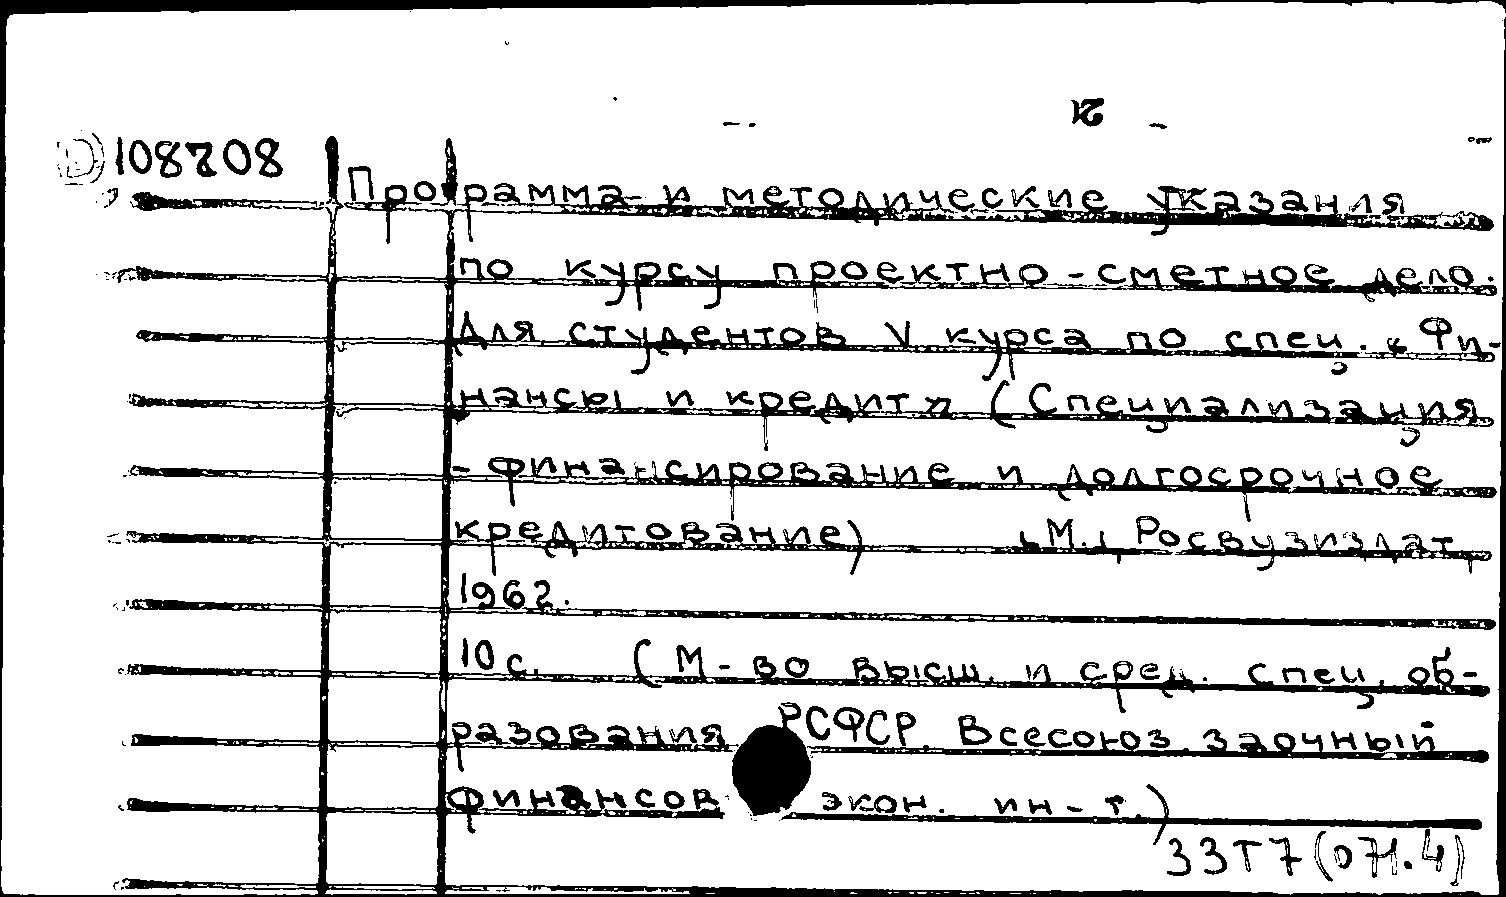 21
108208
Программа и методические указания
по курсу проектно-сметное дело.
Для студентов V курса по спец. «Фи-
нансы и кредит» (Специализация
- финансирование и долгосрочное
кредитование) М., Росвузиздат,
1962.
10 с. (М-во высш. и сред. спец. об-
разования РСФСР. Всесоюз. заочный
финансов экон. ин-т.)
33Т7(071.4)